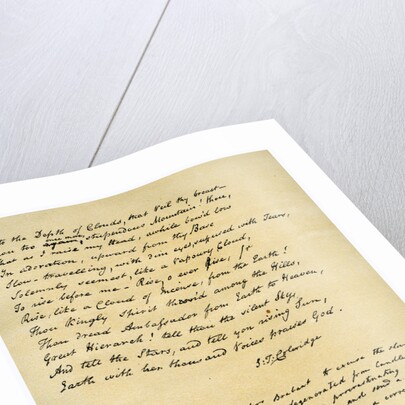 to the Depth of Clouds, that veil thy breast—
too again, stupendous Mountain! thou,
That as I raise my Head, awhile bow'd low
In Adoration, upward from thy Base
Slow travelling, with dim eyes suffused with Tears,
Solemnly seemest, like a vapoury Cloud,
To rise before me— Rise, o ever Rise,
Rise, like a Cloud of Incense, from the Earth!
Thou Kingly Spirit throned among the Hills,
Thou dread Ambassador from Earth to Heaven,
Great Hierarch! tell thou the silent Sky,
And tell the Stars, and tell yon rising Sun,
Earth with her thousand Voices praises God.
S. T. Coleridge
to excuse the
degenerated from
procrastinating
and send a